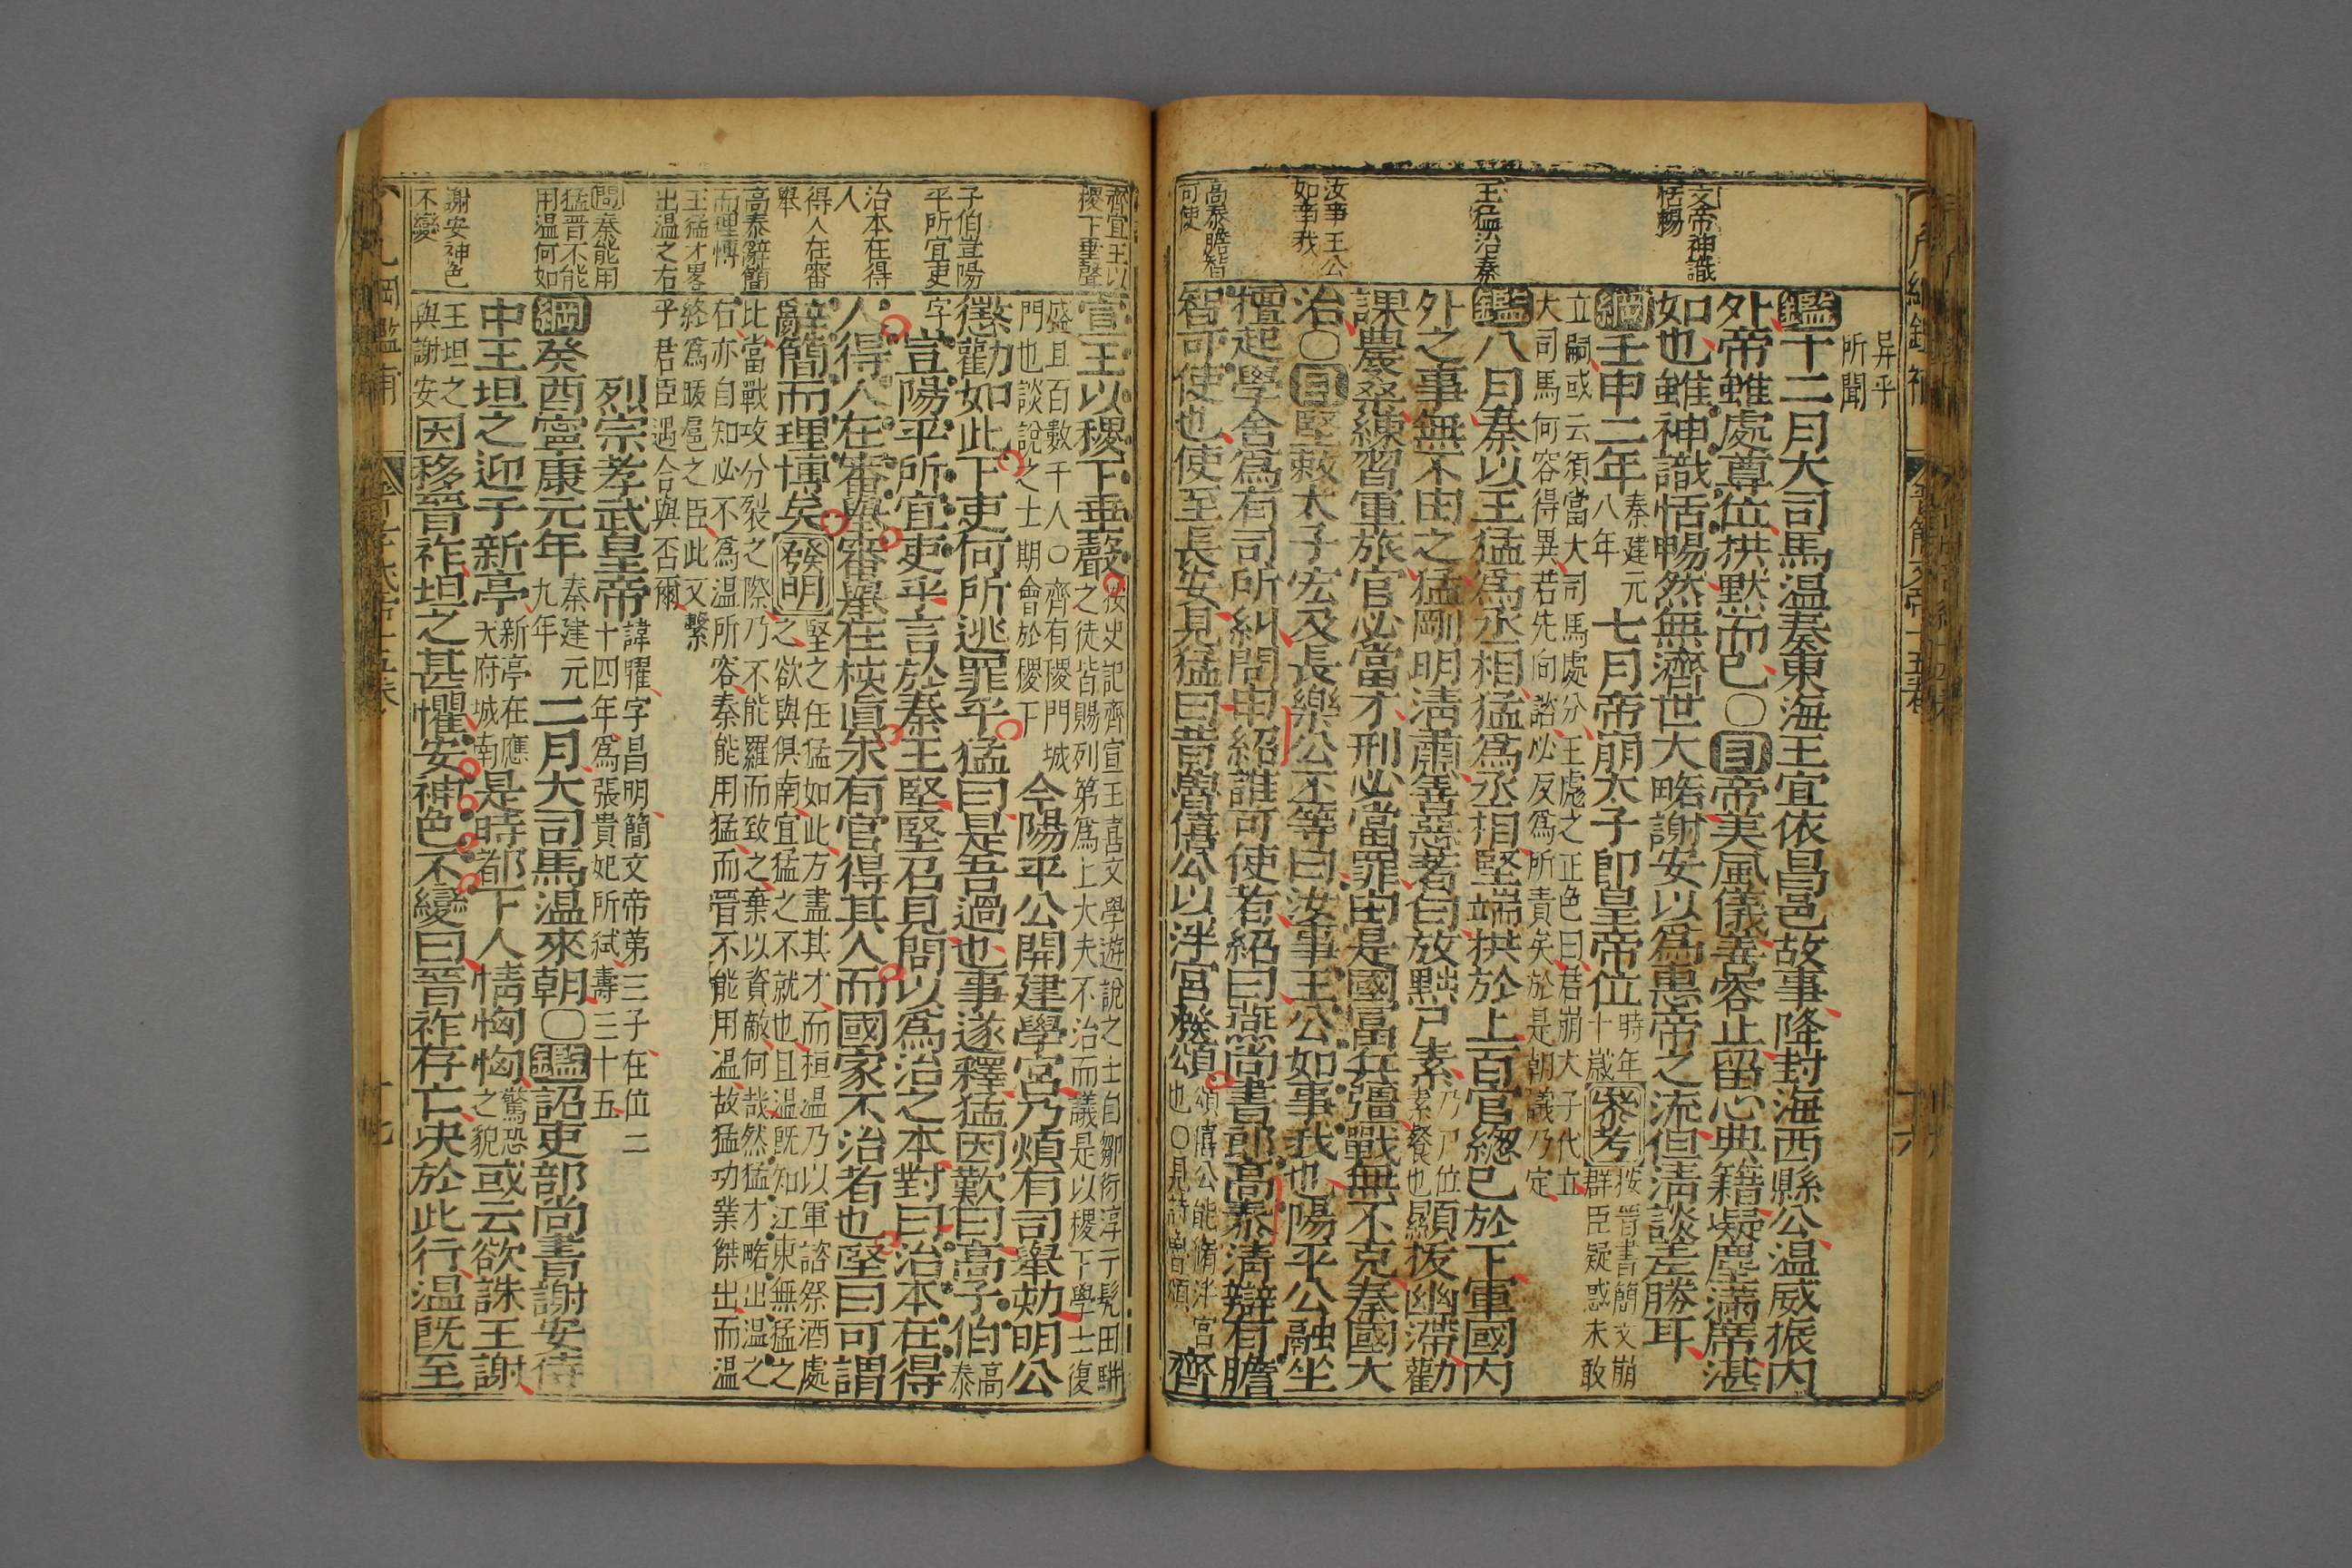 异乎
所聞
鑑十二月大司馬温奏東海王宜依昌邑故事降封海西縣公温威振内
外帝雖處尊位拱默而已〇目帝美風儀善容止留心典籍凝塵滿席湛
文帝神識
恬暢
如也雖神識恬暢然無濟世大略謝安以爲惠帝之流但清談差勝耳
綱壬申二年
秦建元
八年
七月帝崩太子即皇帝位
時年
十歲
參考
按晉書簡文崩
群臣疑惑未敢
立嗣或云須當大司馬處分王彪之正色曰君崩太子代立
大司馬何容得異若先向諮必反爲所責矣於是朝議乃定
王猛治秦
鑑八月秦以王猛爲丞相猛爲丞相堅端拱於上百官總已於下軍國内
外之事無不由之猛剛明清肅善惡著白放黜尸素
乃尸位
素餐也
顯拔幽滯勸
課農桑練習軍旅官必當才刑必當罪由是國富兵彊戰無不克秦國大
汝事王公
如事我
治〇目堅敕太子宏及長樂公丕等曰汝事王公如事我也陽平公融坐
擅起學舍爲有司所糾問申紹誰可使者紹曰燕尚書郎高泰清辯有膽
高泰膽智
可使
智可使也使至長安見猛曰昔魯僖公以泮宮發頌
頌僖公能脩泮宮
也〇見詩魯頌
齊
齊宣王以
稷下垂聲
宣王以稷下垂聲
按史記齊宣王喜文學遊說之士自鄒衍淳于髡田駢
之徒皆賜列第爲上大夫不治而議是以稷下學士復
盛且百數千人〇齊有稷門城
門也談說之士期會於稷下
今陽平公開建學宮乃煩有司舉劾明公
懲勸如此下吏何所逃罪乎猛曰是吾過也事遂釋猛因歎曰高子伯
高
泰
子伯豈陽
平所宜吏
字
豈陽平所宜吏乎言於秦王堅堅召見問以爲治之本對曰治本在得
治本在得
人
人得人在審舉審舉在核真未有官得其人而國家不治者也堅曰可謂
得人在審
舉
辭簡而理博矣
發明
堅之任猛如此方盡其才而桓温乃以軍諮祭酒處
之欲與俱南宜猛之不就也且温既知江東無猛之
高泰辭簡
而理博
比當戰攻分裂之際乃不能羅而致之棄以資敵何哉然猛才略出温之
右亦自知必不爲温所容秦能用猛而晉不能用温故猛功業傑出而温
王猛才畧
出温之右
終爲跋扈之臣此又繫
乎君臣遇合與否爾
問秦能用
猛晉不能
用温何如
烈宗孝武皇帝
諱曜字昌明簡文帝第三子在位二
十四年爲張貴妃所弑壽三十五
綱癸酉寧康元年
秦建元
九年
二月大司馬温來朝〇鑑詔吏部尚書謝安侍
中王坦之迎于新亭
新亭在應
天府城南
是時都下人情恟恟
驚恐
之貌
或云欲誅王謝
謝安神色
不變
王坦之
與謝安
因移晉祚坦之甚懼安神色不變曰晉祚存亡决於此行温既至